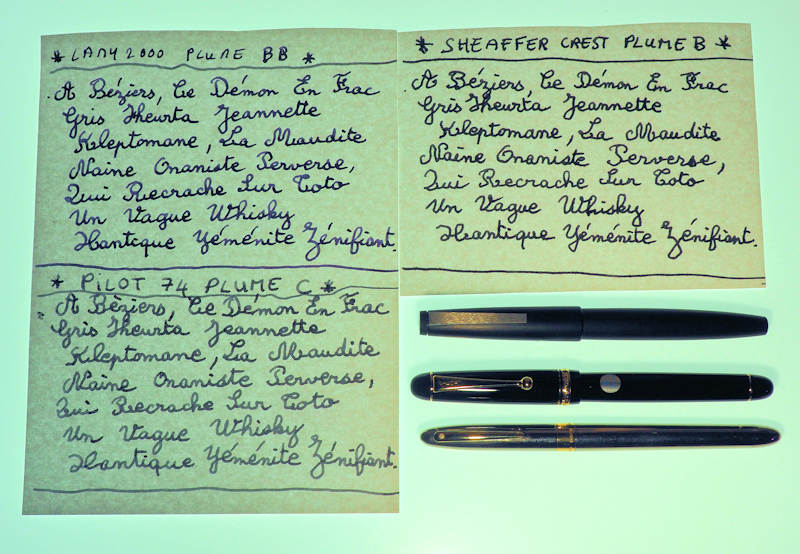 * LAMY 2000 PLUME BB *
A Béziers, Ce Démon En Frac
Gris Heurta Jeannette
Kleptomane, La Maudite
Naine Onaniste Perverse,
Qui Recrache Sur Toto
Un Vague Whisky
Xantique Yéménite Zénifiant.
* PILOT 74 PLUME C *
A Béziers, Ce Démon En Frac
Gris Heurta Jeannette
Kleptomane, La Maudite
Naine Onaniste Perverse,
Qui Recrache Sur Toto
Un Vague Whisky
Xantique Yéménite Zénifiant.
* SHEAFFER CREST PLUME B *
A Béziers, Ce Démon En Frac
Gris Heurta Jeannette
Kleptomane, La Maudite
Naine Onaniste Perverse,
Qui Recrache Sur Toto
Un Vague Whisky
Xantique Yéménite Zénifiant.